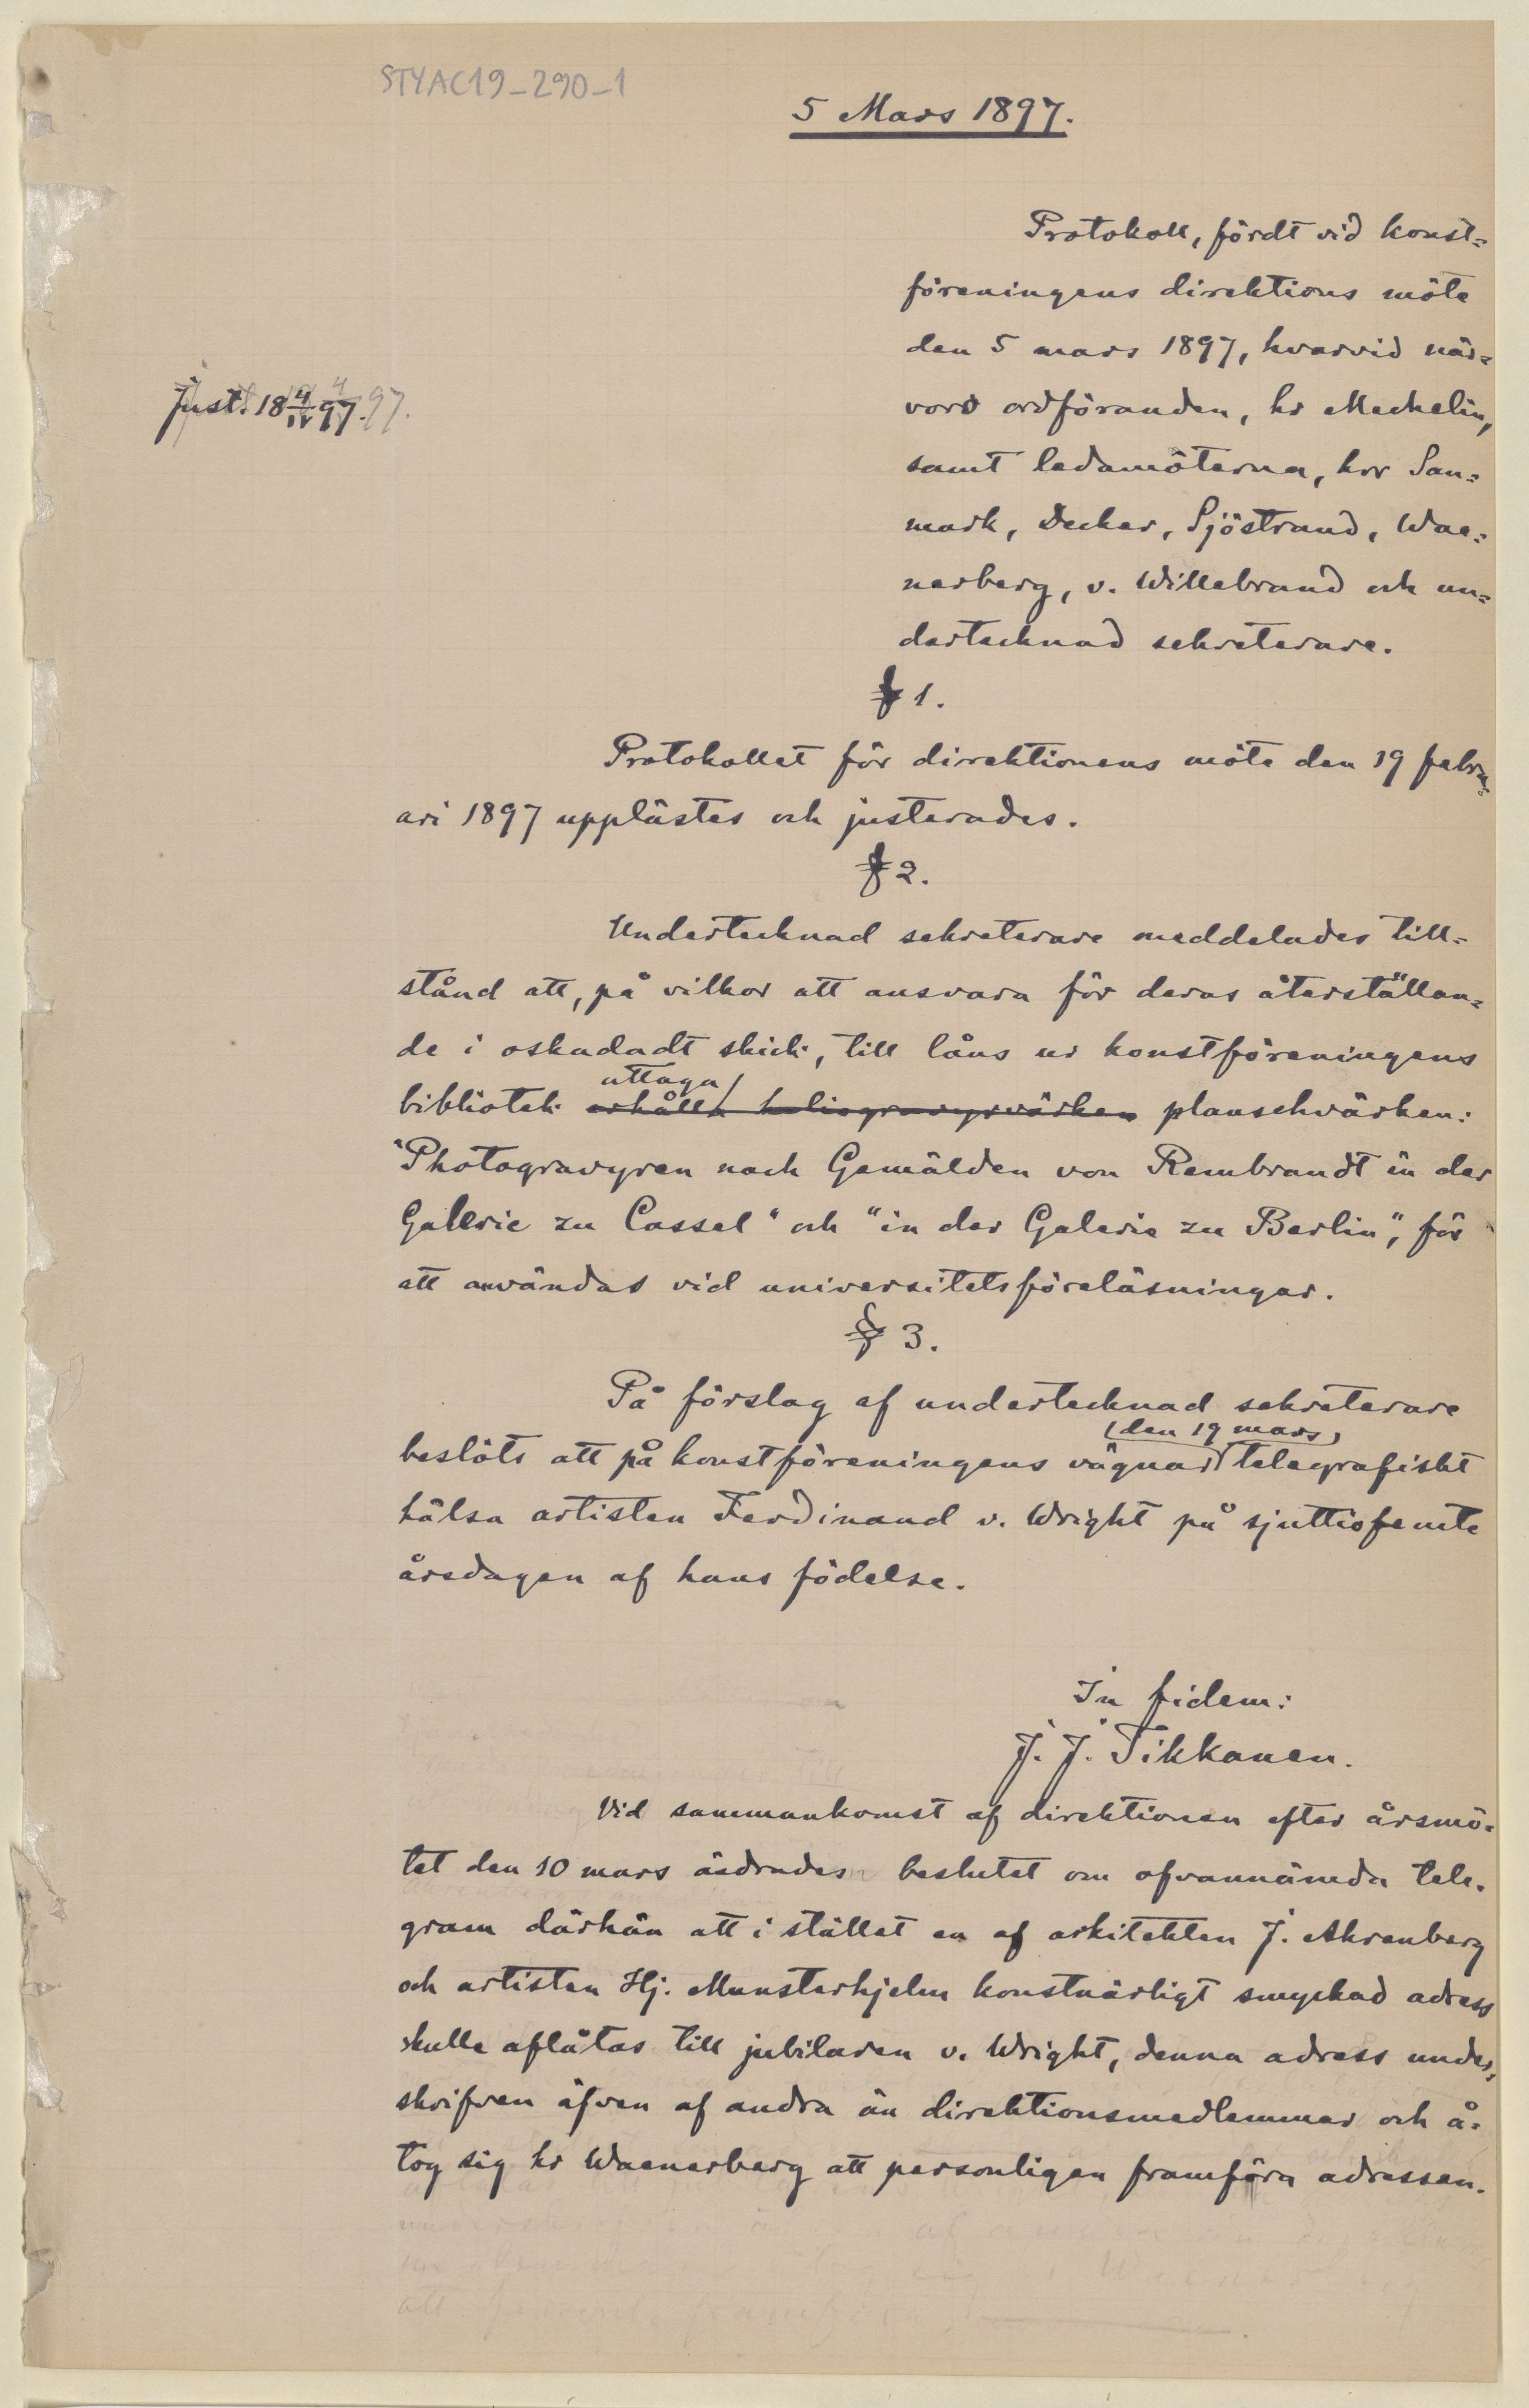 STYAC19_290_1
5 Mars 1897.
Protokoll, fördt vid konst=
föreningens direktions möte
den 5 mars 1897, hvarvid när=
voro ordföranden, hr Mechelin,
Just. 18 4/IV 97.
samt ledamöterna, hrr San=
mark, Decker, Sjöstrand, Wae=
nerberg, v. Willebrand och un=
dertecknad sekreterare.
§ 1.
Protokollet för direktionens möte den 19 febru=
ari 1897 upplästes och justerades.
§ 2.
Undertecknad sekreterare meddelades till=
stånd att, på vilkor att ansvara för deras återställan=
de i oskadadt skick, till låns ur konstföreningens
uttaga
bibliotek erhålla heliogravyrvärken planschvärken:
"Photogravyren nach Gemälden von Rembrandt in der
Gallerie zu Cassel" och "in der Galerie zu Berlin", för
att användas vid universitetsföreläsningar.
§ 3.
På förslag af undertecknad sekreterare
(den 19 mars)
beslöts att på konstföreningens vägnar telegrafiskt
hälsa artisten Ferdinand v. Wright på sjuttiofemte
årsdagen af hans födelse.
In fidem:
J. J. Tikkanen.
Vid sammankomst af direktionen efter årsmö=
tet den 10 mars ändrades beslutet om ofvannämda tele=
gram därhän att i stället en af arkitekten J. Ahrenberg
och artisten Hj. Munsterhjelm konstnärligt smyckad adress
skulle aflåtas till jubilaren v. Wright, denna adress under=
skrifven äfven af andra än direktionsmedlemmar och å=
tog sig hr Waenerberg att personligen framföra adressen.